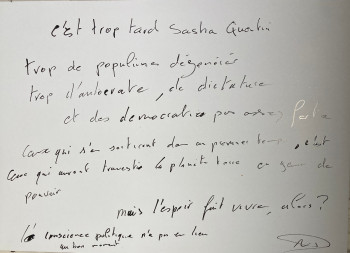 c'est trop tard Sasha
trop de populismes dégénérés
trop d'autocrate, de dictature
et des démocraties pas assez forte
Ceux qui s'en sortiront dans un premier temps, c'est
Ceux qui auront travestis la planète terre en
pouvoir
mais l'espoir fait vivre, alors ?
conscience politique n'a pas eu lieu
au bon moment